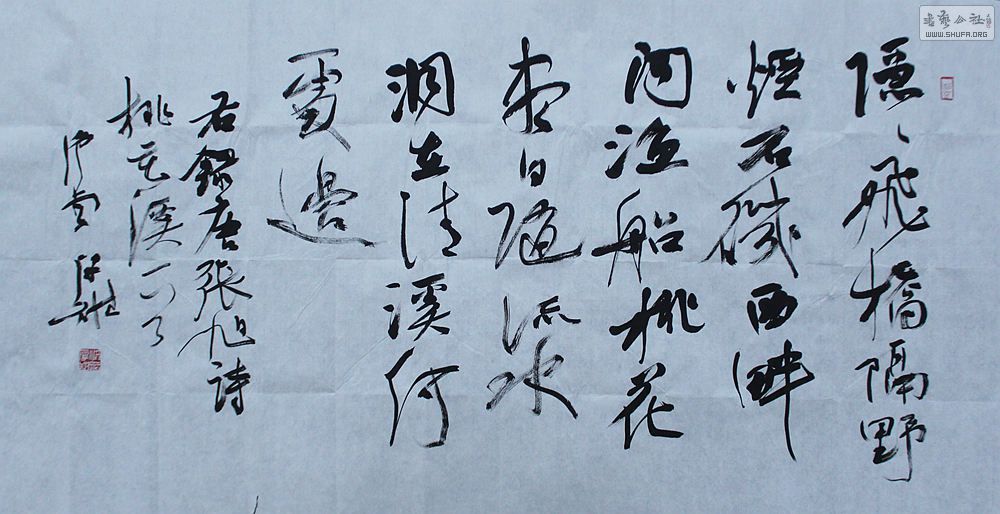 隐〻飛橋隔野
煙石磯西畔
问渔船桃花
盡日随流水
洞在清溪何
處邊
右錄唐張旭詩
桃花溪一首
書藝公社
WWW.SHUFA.ORG